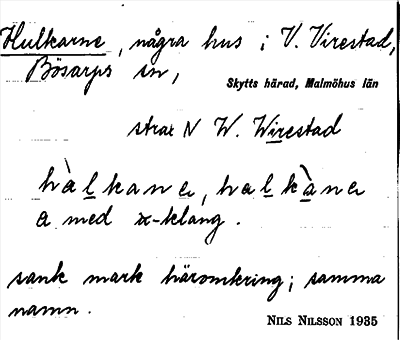 Hulkarne, några hus i V. Virestad,
Bösarps sn,
Skytts härad, Malmöhus län
strax N W. Wirestad
hàlkane, halkàne
a med æ-klang.
sank mark häromkring; samma
namn.
NILS NILSSON 1935